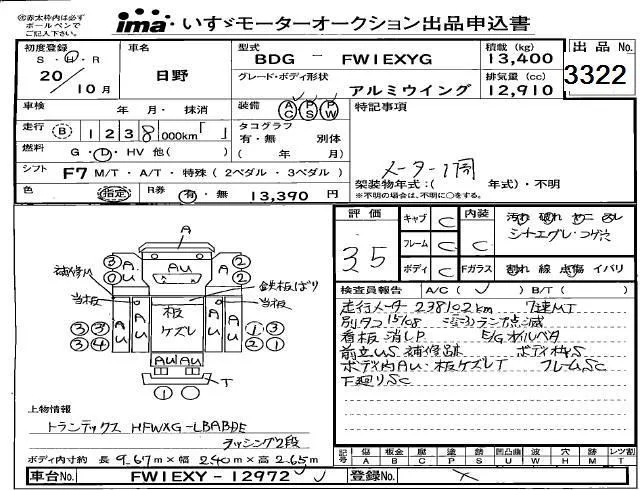 ㊟赤太枠内は必ず
ボールペンで
ご記入下さい。
ima いすゞモーターオークション出品申込書
初度登録
S・H・R
20/10月
車名
日野
型式
BDG － FW1EXYG
グレード・ボディ形状
アルミウイング
積載(kg)
13,400
排気量(cc)
12,910
出品No.
3322
車検 年 月・抹消
装備 AC PS PW
特記事項
走行 B 1238,000km「 」
タコグラフ
有・無 別体
( 年 月)
燃料 G・D・HV 他( )
メーター1周
シフト F7 M/T・A/T・特殊(2ペダル・3ペダル)
架装物年式:( 年式)・不明
※不明の場合は、不明に○をする。
色 指定 R券 有・無 13,390 円
評価
3.5
キャブ C
フレーム C
ボディ C
内装
C
Fガラス 割れ 線 点傷 イバリ
シートエグレ・コゲ穴
検査員報告 A/C( ) B/T( )
走行メーター 238102km 7速MT
看板消しP E/Gオイルベタ
ボディ内AU・板ケズレT フレームSC
下廻りSC
A
補修M
当板
鉄板ばり
当板
AU
板
ケズレ
AU AU
T
上物情報
トランテックス HFWXG-LBABDE
ラッシング2段
ボディ内寸約 長 9.67m×幅 2.40m×高 2.65m
記号 傷 A 板金 B 腐 C 塗 P 錆 S 凹凸曲 U 波 W 穴 H 跡 M レツ割 T
車台No. FW1EXY-12972
登録No.